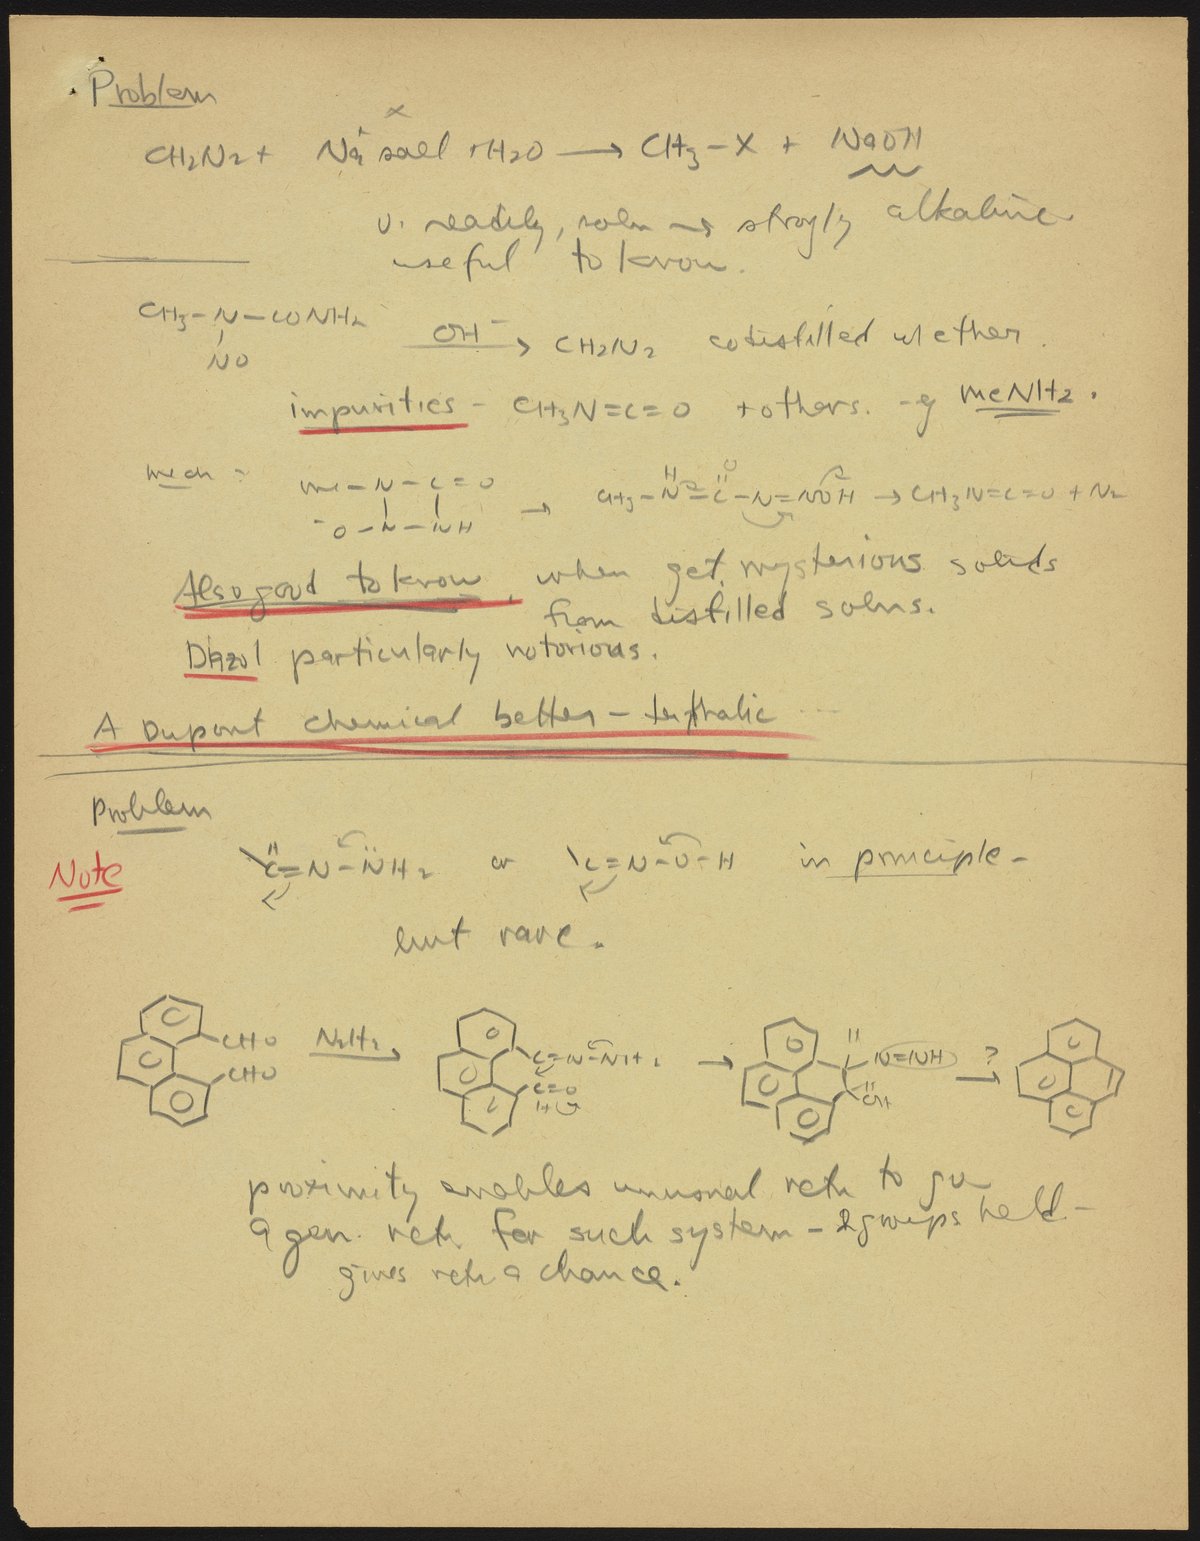 Problem
x
CH2N2 + Na+ salt + H2O → CH3-X + NaOH
v. readily, soln → strongly alkaline
useful to know.
CH3-N-CONH2 OH- → CH2N2 codistilled w/ ether.
NO
impurities - CH3N=C=O + others. -eg MeNH2.
mech: Me-N-C=O → CH3-N=C-N=NOH → CH3N=C=O + N2
H O
-O-N-NH
Also good to know, when get mysterious solids
from distilled solns.
Diazol particularly notorious.
A Dupont chemical better - terphthalic ...
Problem
Note C=N-NH2 or C=N-O-H in principle -
H
but rare.
CHO N2H2 → C=N-NH2 → H N=NH ? →
CHO C=O OH
H
proximity enables unusual rctn to go
a gen. rctn for such system - 2 groups held -
gives rctn a chance.